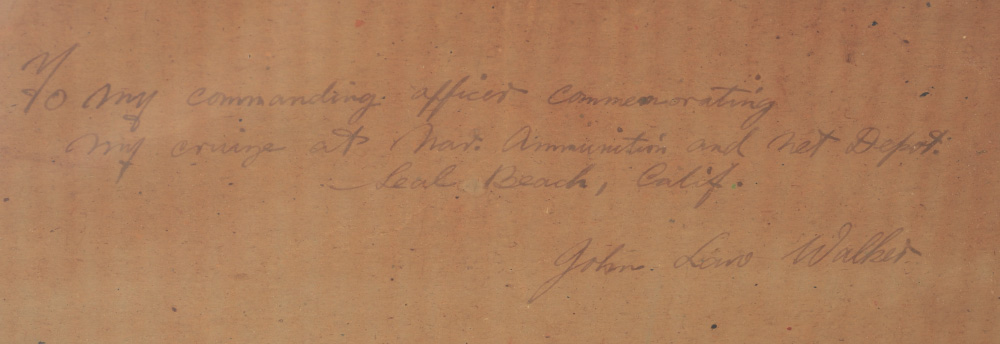 To my commanding officer commemorating
my cruise at Nav. Ammunition and net Depot.
— Seal Beach, Calif.
John Law Walker